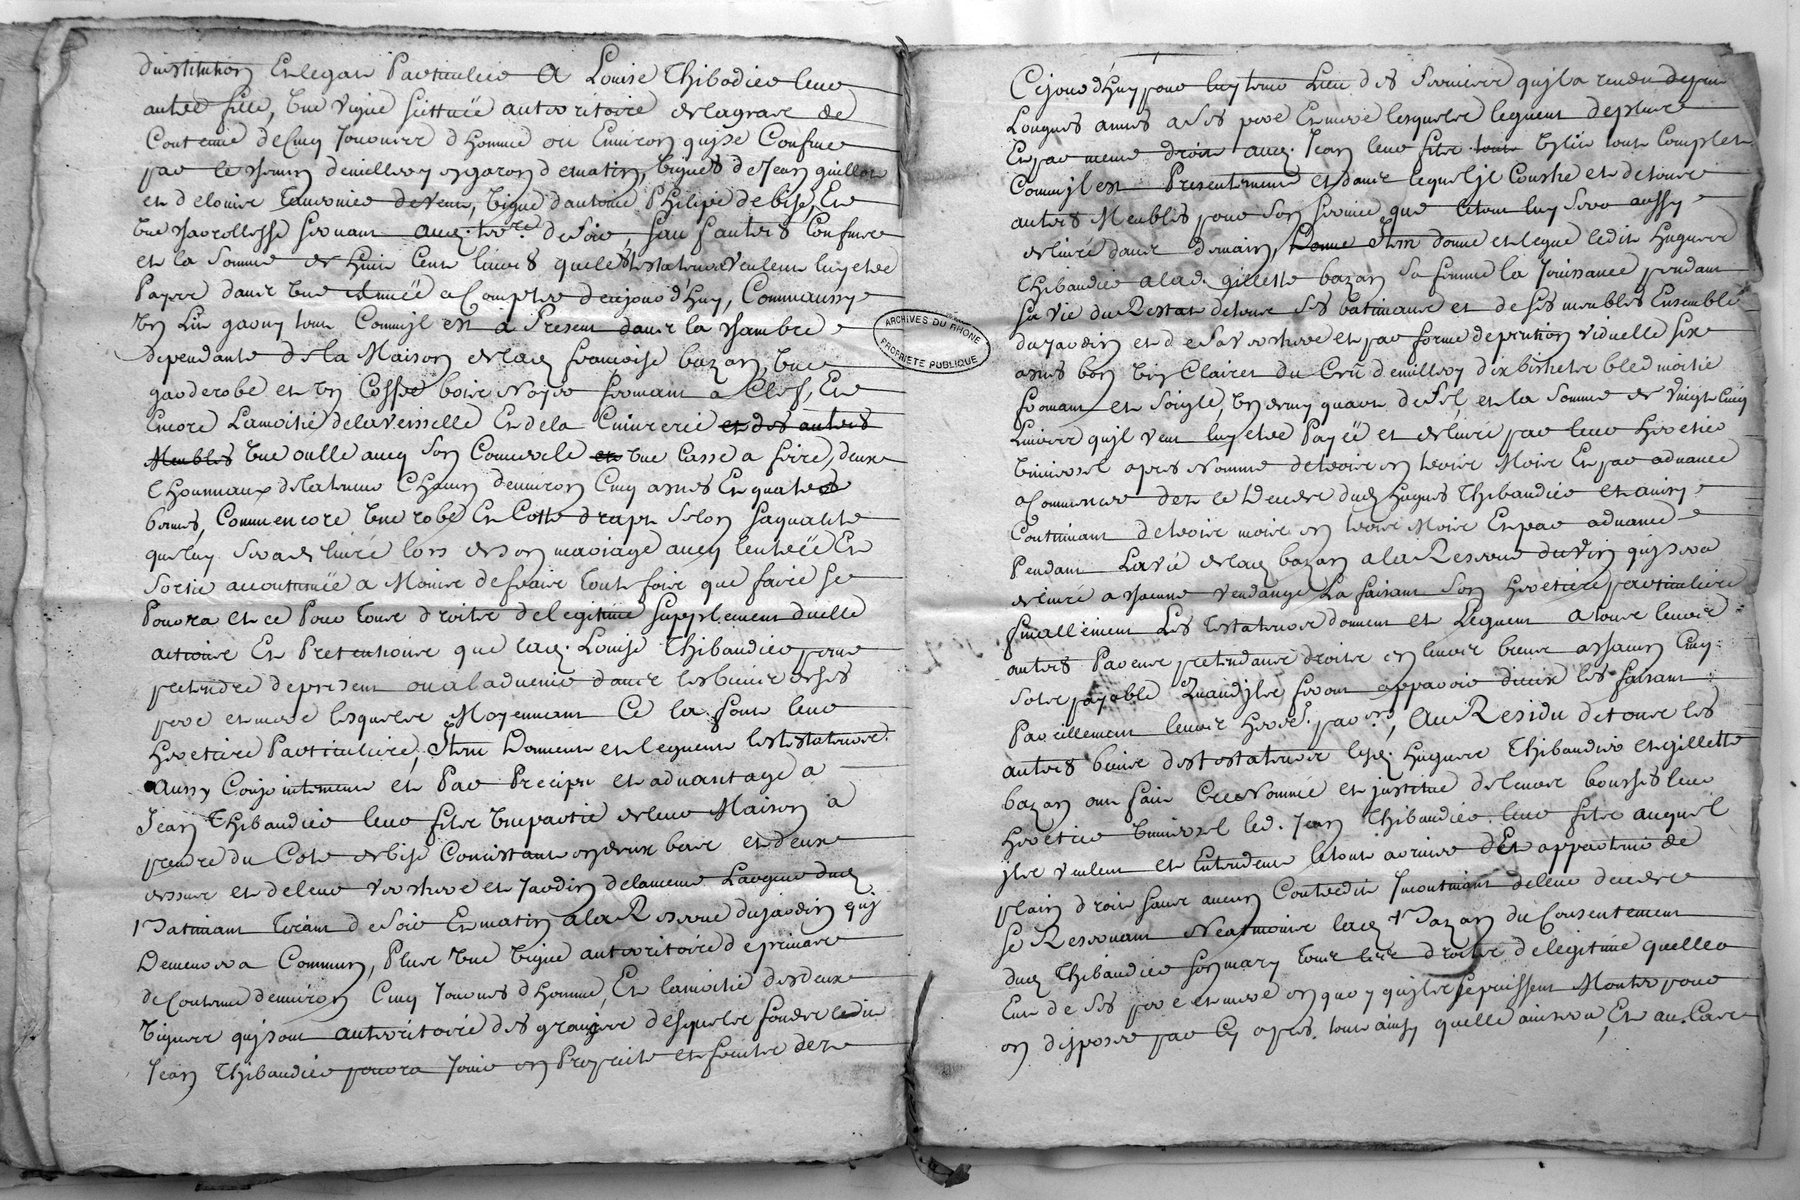 dinstitution Et legat Particulier A Louise Thibodier leur
autre fille, Une vigne scittuée au terroritoire de la grave de
Contenue de Cinq Journées d'homme ou Environ qui se Confine
par le chemin de milleroy de matin, vignes de Jean guillot
et de louise de vent, vigne d'antoine Philipe de bise, Et
de soir, sauf autres Confins
et la Somme de huict Cent livres que les testateurs veulent luy etre
Payée dans Une année a Compter d'aujourdhuy, Comm aussy
Un Lit garny tout Comm il est à Present dans la chambre
dependante de la Maison de lad francoise bazan, Une
garderobe et Un Coffre bois Noyer fermant a Clef, Et
Encore La moitié de la veisselle Et de la Cuivrerie et des autres
Meubles Une oulle avec son Couvercle et Une Casse a frire, deux
de la tenue Chacun d'environ Cinq anées Et quatre
bennes, Comm encore Une robe Et Cotte drapt selon sa qualité
que luy sera delivré lors de son mariage avec l'entrée Et
Sortie accoutumée a Moins de fraix toutefois que faire se
Pourra et ce Pour tous droits de legitime supplement d'icelle
actions Et Pretentions que lad. Louise Thibaudier peut
pretendre de present ou a l'advenir dans les biens de ses
pere et mere lesquels Moyennant Ce la font leur
heretiere Particuliere; Item Donnent et leguent les testateurs
aussy Conjointement et Par Precipu et advantage a
Jean Thibaudier leur fils Une partie de leur Maison a
prendre du Coté de bise Consistant en deux bas et deux
dessus et de leur verchere et Jardin de la meme Largeur dud
Batimant tirant de soir En matin a la Reserve du jardin qui
Demeurera Commun, Plus Une Vigne au terroritoire de
de Contenue d'environ Cinq Journées d'homme, Et la moitié des deux
Vignes qui sont au territoire des granges desquels fonds ledit
Jean Thibaudier pourra Jouir en Proprieté et fruits dez
Cejourdhuy pour luy tenir Lieu des Services qu'il a rendu depuis
Longues annés a ses pere Et mere lesquels leguent de plus
Et par meme droit aud. Jean leur fils tout Un lit tout Complet
Comm il est Presentement et dans lequel il Couche et de tous
autres Meubles pour son service que le tout luy sera aussy
delivré dans demain, Donne Item donne et legue ledit hugues
Thibaudier a lad. gillette bazan sa femme la Jouissance pendant
sa vie du Restat de tous ses batiments et de ses meubles Ensemble
du jardin et de sa verchere et par forme de pention viduelle six
anés bon vin Clairet du Crû de milleroy dix bichets bled moitié
fromant et soigle, Un demy quart de sel, et la somme de Vingt Cinq
Livres qu'il veut luy etre Payée et delivré par leur heretier
Universel apres Nommé de trois en trois Mois Et par advance
a Commencer dez le Deces dud hugues Thibaudier et ainsy
Continuant de trois mois en trois Mois Et par advance
Pendant La vie de lad bazan a la Reserve du vin qui sera
delivré a chacune vendange La faisant son heretiere particuliere
finallement Les testateurs donnent et Leguent a tous leurs
autres Parents pretendants droits en leurs biens a chacun Cinq
Sols payable Quand ils feront apparoir d'iceux les faisant
Pareillement leurs hered. par.res, Au Residu de tous les
autres biens des testateurs lesd. hugues Thibaudier et gillette
bazan ont fait Creé Nommé et institué de leurs bouches leur
heretier Universel led. Jean Thibaudier leur fils auquel
ils veulent et Entendent le tout arriver Et appartenir de
plain droit sans aucun Contredit Incontinant de leur deceds
se Reservant Neatmoins lad Bazan du Consentement
dud Thibaudier son mary tous les droits de legitime quelle a
Eut de ses pere et mere en quoy qu'ils se puissent Monter pour
en disposer par Cy apres tout ainsy quelle avisera, Et au Cas
ARCHIVES DU RHONE
PROPRIETE PUBLIQUE